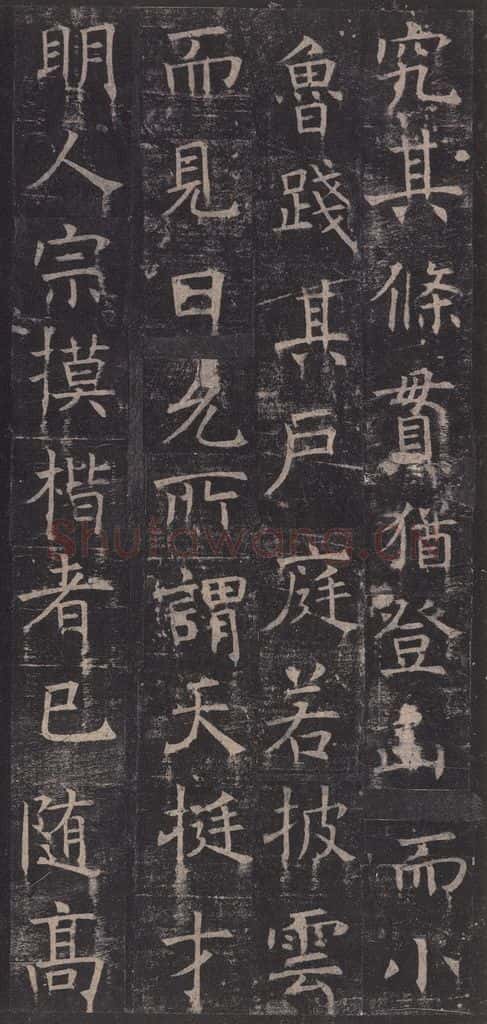 究其條貫猶登山而小
魯踐其戶庭若披雲
而見日允所謂天挺才
明人宗摸楷者已随高
Shufawang.cn